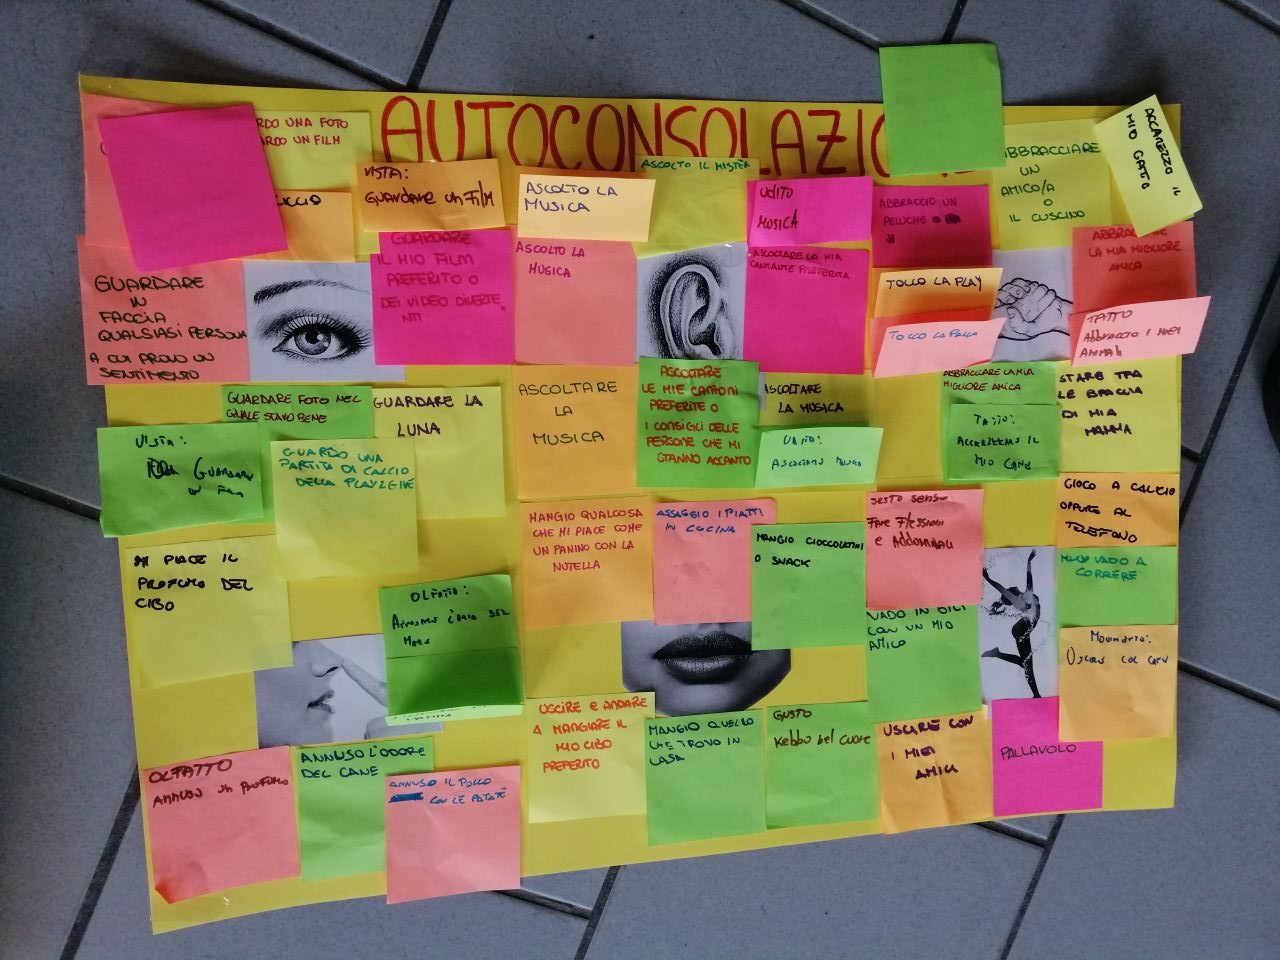 AUTOCONSOLAZIONE
RDO UNA FOTO
ARDO UN FILM
CCIO
VISTA:
GUARDARE UN FILM
ASCOLTO LA
MUSICA
ASCOLTO IL MISTER
UDITO
MUSICA
ABBRACCIO UN
PELUCHE O
ABBRACCIARE
UN
AMICO/A
O
IL CUSCINO
ACCAREZZO IL
MIO GATTO
GUARDARE
IN
FACCIA
QUALSIASI PERSONA
A CUI PROVO UN
SENTIMENTO
GUARDARE
IL MIO FILM
PREFERITO O
DEI VIDEO DIVERTE
NTI
ASCOLTO LA
MUSICA
ASCOLTARE LA MIA
CANTANTE PREFERITA
TOCCO LA PLAY
TOCCO LA PALLA
ABBRAC
LA MIA MIGLIORE
AMICA
TATTO
Abbraccio i miei
Animali
GUARDARE FOTO NEL
QUALE STAVO BENE
GUARDARE LA
LUNA
VISTA:
GUARDARE
UN FILM
GUARDO UNA
PARTITA DI CALCIO
DELLA PLAY/LIVE
ASCOLTARE
LA
MUSICA
ASCOLTARE
LE MIE CANZONI
PREFERITE O
I CONSIGLI DELLE
PERSONE CHE MI
STANNO ACCANTO
ASCOLTARE
LA MUSICA
UDITO:
ASCOLTARE MUSICA
ABBRACCIARE LA MIA
MIGLIORE AMICA
TATTO:
ACCAREZZARE IL
MIO CANE
STARE TRA
LE BRACCIA
DI MIA
MAMMA
MI PIACE IL
PROFUMO DEL
CIBO
OLFATTO:
MARE
MANGIO QUALCOSA
CHE MI PIACE COME
UN PANINO CON LA
NUTELLA
ASSAGGIO I PIATTI
IN CUCINA
MANGIO CIOCCOLATINI
O SNACK
SESTO SENSO
FARE FLESSIONI
E ADDOMINALI
GIOCO A CALCIO
OPPURE AL
TELEFONO
VADO A
CORRERE
VADO IN BICI
CON UN MIO
AMICO
MOVIMENTO:
USCIRE COL CANE
OLFATTO
ANNUSO UN PROFUMO
ANNUSO L'ODORE
DEL CANE
ANNUSO IL POLLO
CON LE PATATE
USCIRE E ANDARE
A MANGIARE IL
MIO CIBO
PREFERITO
MANGIO QUELLO
CHE TROVO IN
CASA
GUSTO
Kebbo nel cuore
USCIRE CON
I MIEI
AMICI
PALLAVOLO